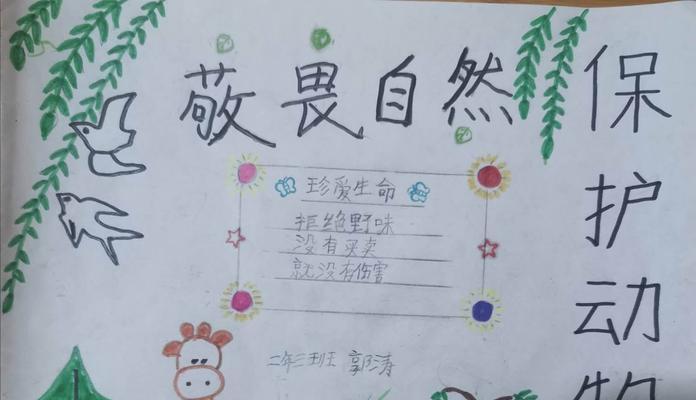 敬畏自然
保护动物
珍爱生命
拒绝野味
没有买卖
就没有伤害
二年三班 郭清